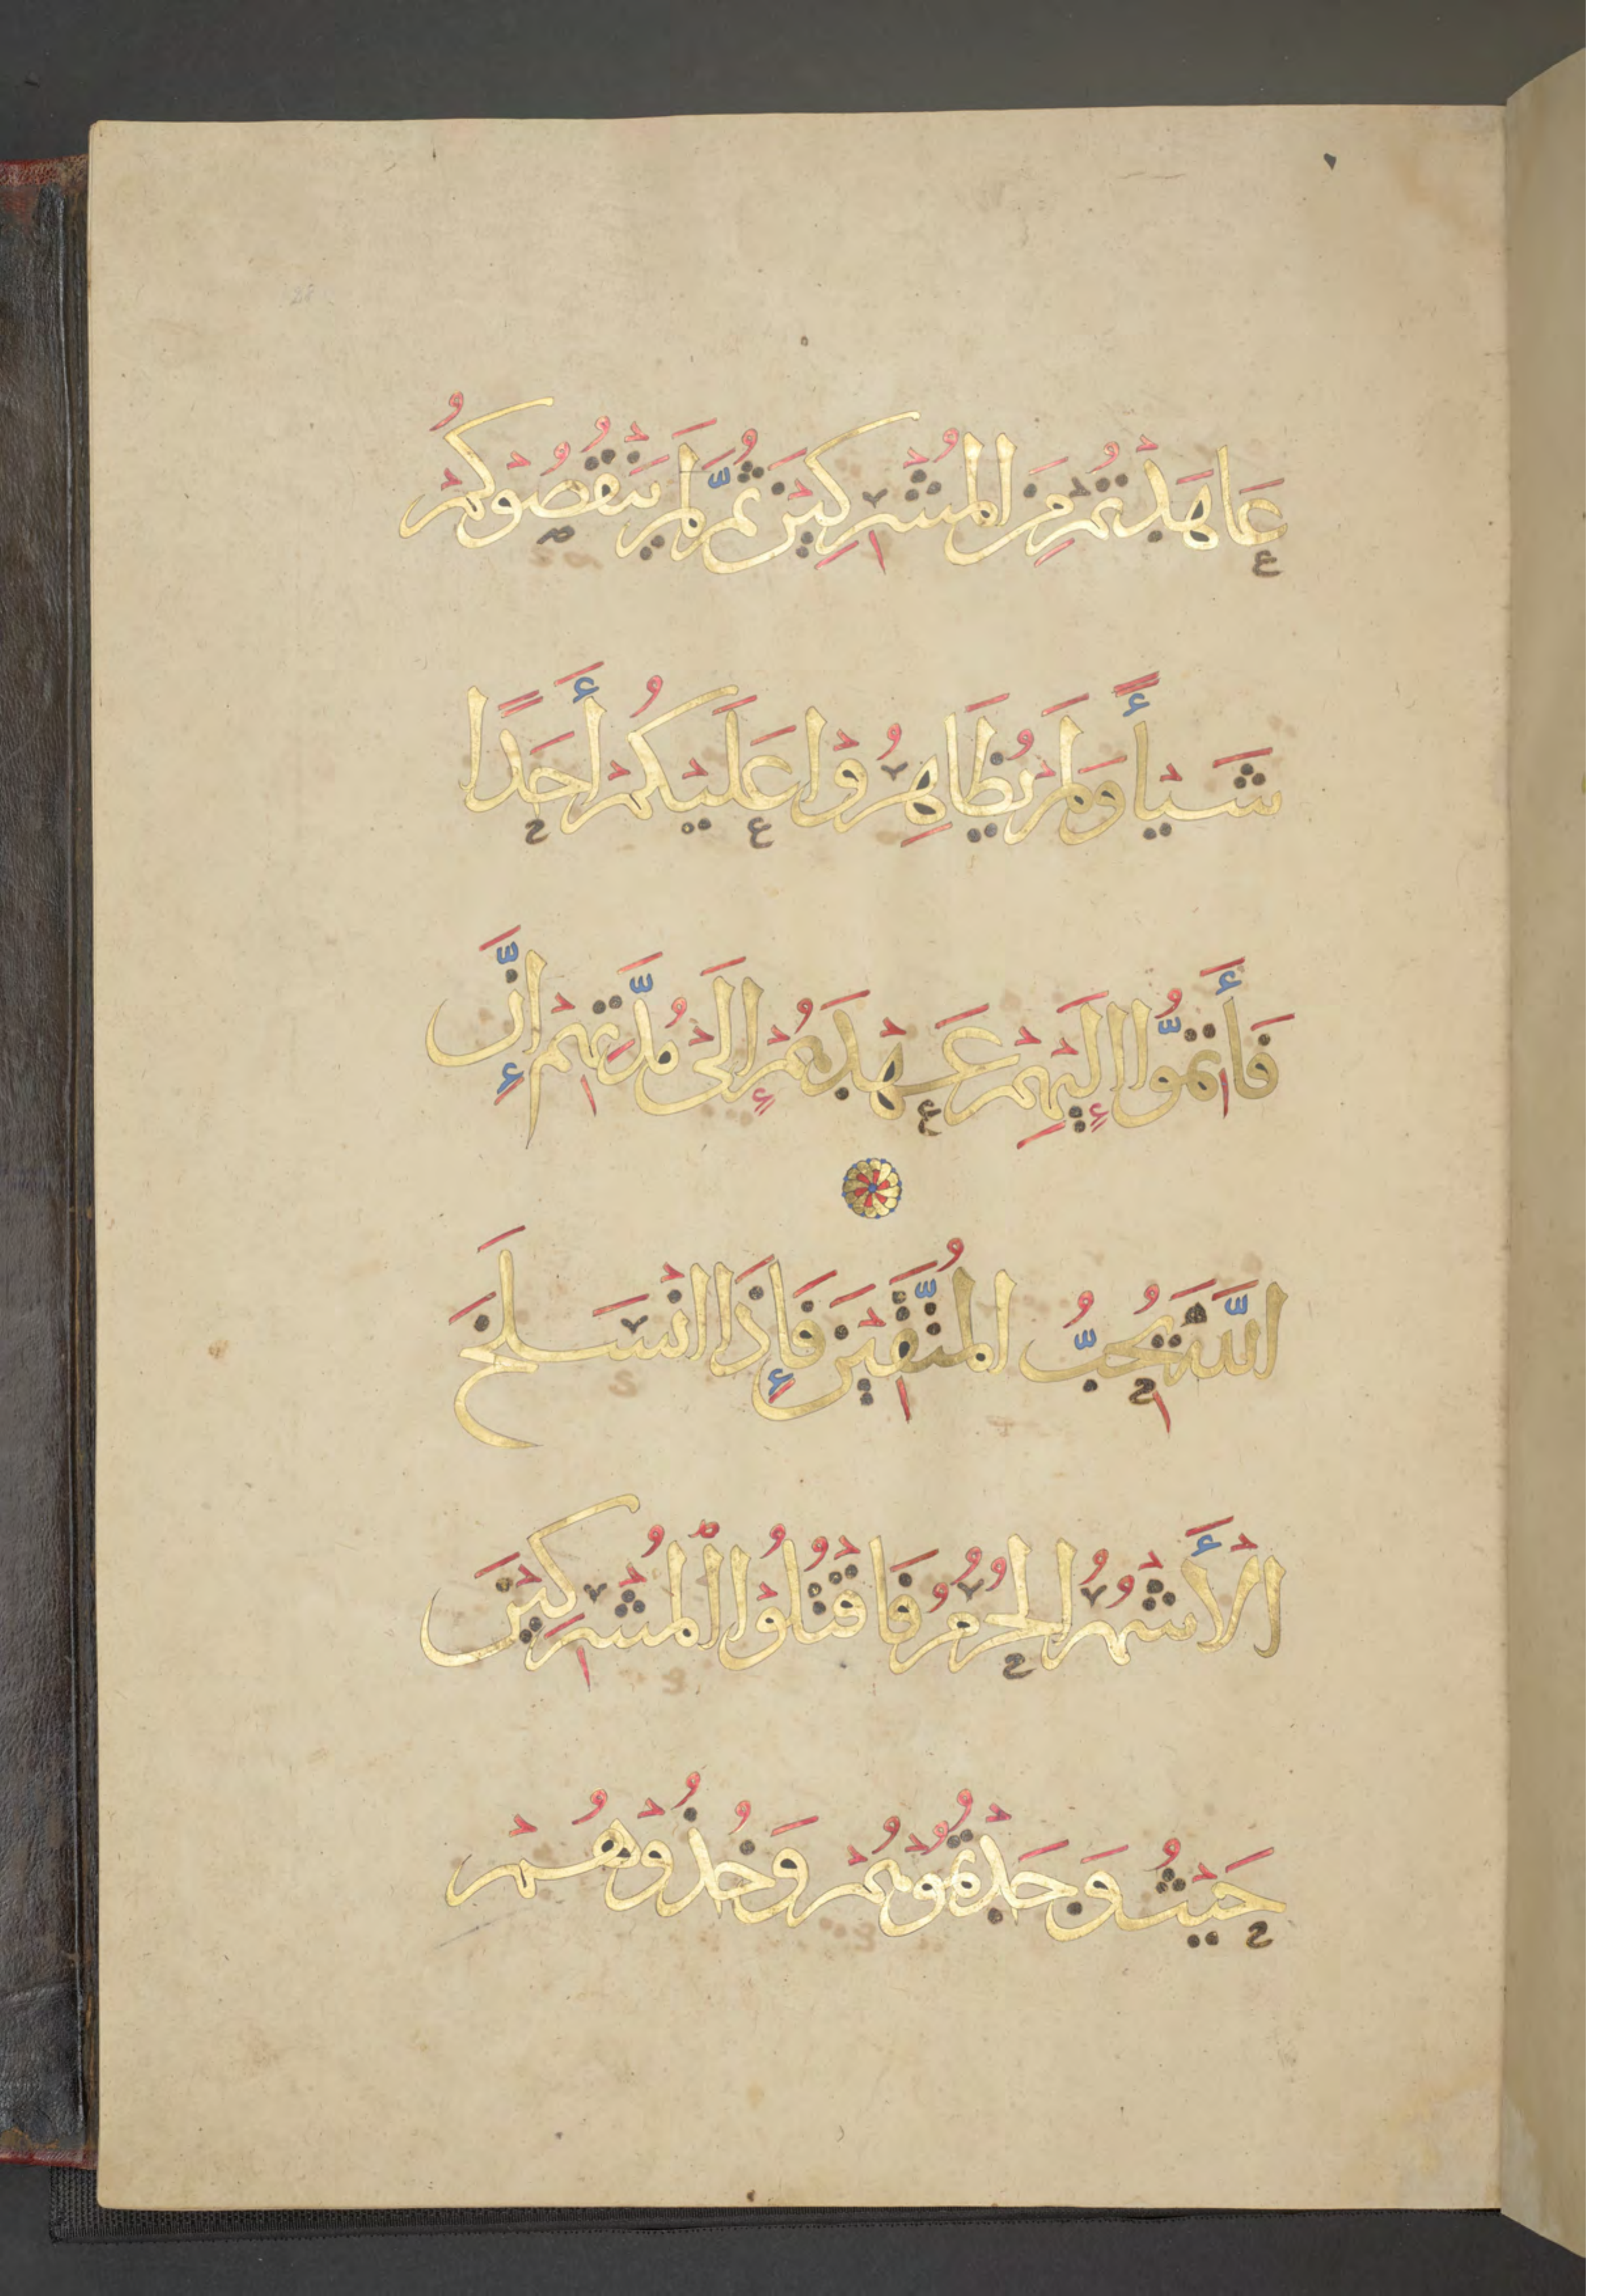 عَاهَدْتُمْ مِنَ الْمُشْرِكِيْنَ ثُمَّ لَمْ يَنْقُصُوْكُمْ
شَيْأً وَلَمْ يُظَاهِرُوْا عَلَيْكُمْ أَحَدًا
فَأَتِمُّوْا إِلَيْهِمْ عَهْدَهُمْ إِلَىْ مُدَّتِهِمْ إِنَّ
اللَّهَ يُحِبُّ الْمُتَّقِيْنَ فَإِذَا انْسَلَخَ
الْأَشْهُرُ الْحُرُمُ فَاقْتُلُوْا الْمُشْرِكِيْنَ
حَيْثُ وَجَدْتُمُوْهُمْ وَخُذُوْهُمْ